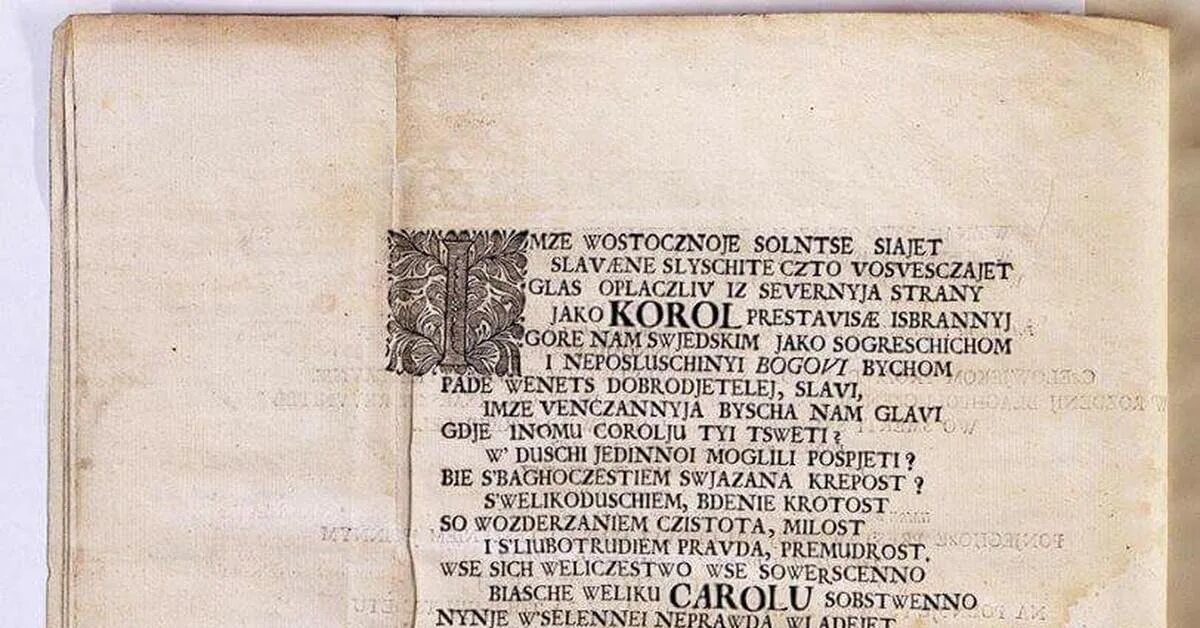 IMZE WOSTOCZNOJE SOLNTSE SIAJET
SLAVÆNE SLYSCHITE CZTO VOSVESCZAJET
GLAS OPLACZLIV IZ SEVERNYJA STRANY
JAKO KOROL PRESTAVISÆ ISBRANNYJ
GORE NAM SWJEDSKIM JAKO SOGRESCHICHOM
I NEPOSLUSCHINYI BOGOVI BYCHOM
PADE WENETS DOBRODJETELEJ, SLAVI,
IMZE VENCZANNYJA BYSCHA NAM GLAVI
GDJE INOMU COROLJU TYI TSWETI?
W' DUSCHI JEDINNOI MOGLILI POSPJETI?
BIE S'BAGHOCZESTIEM SWJAZANA KREPOST?
S'WELIKODUSCHIEM, BDENIE KROTOST
SO WOZDERZANIEM CZISTOTA, MILOST
I S'LIUBOTRUDIEM PRAVDA, PREMUDROST.
WSE SICH WELICZESTWO WSE SOWERSCENNO
BIASCHE WELIKU CAROLU SOBSTWENNO
NYNJE W'SELENNEI NEPRAWDA WLADEJET